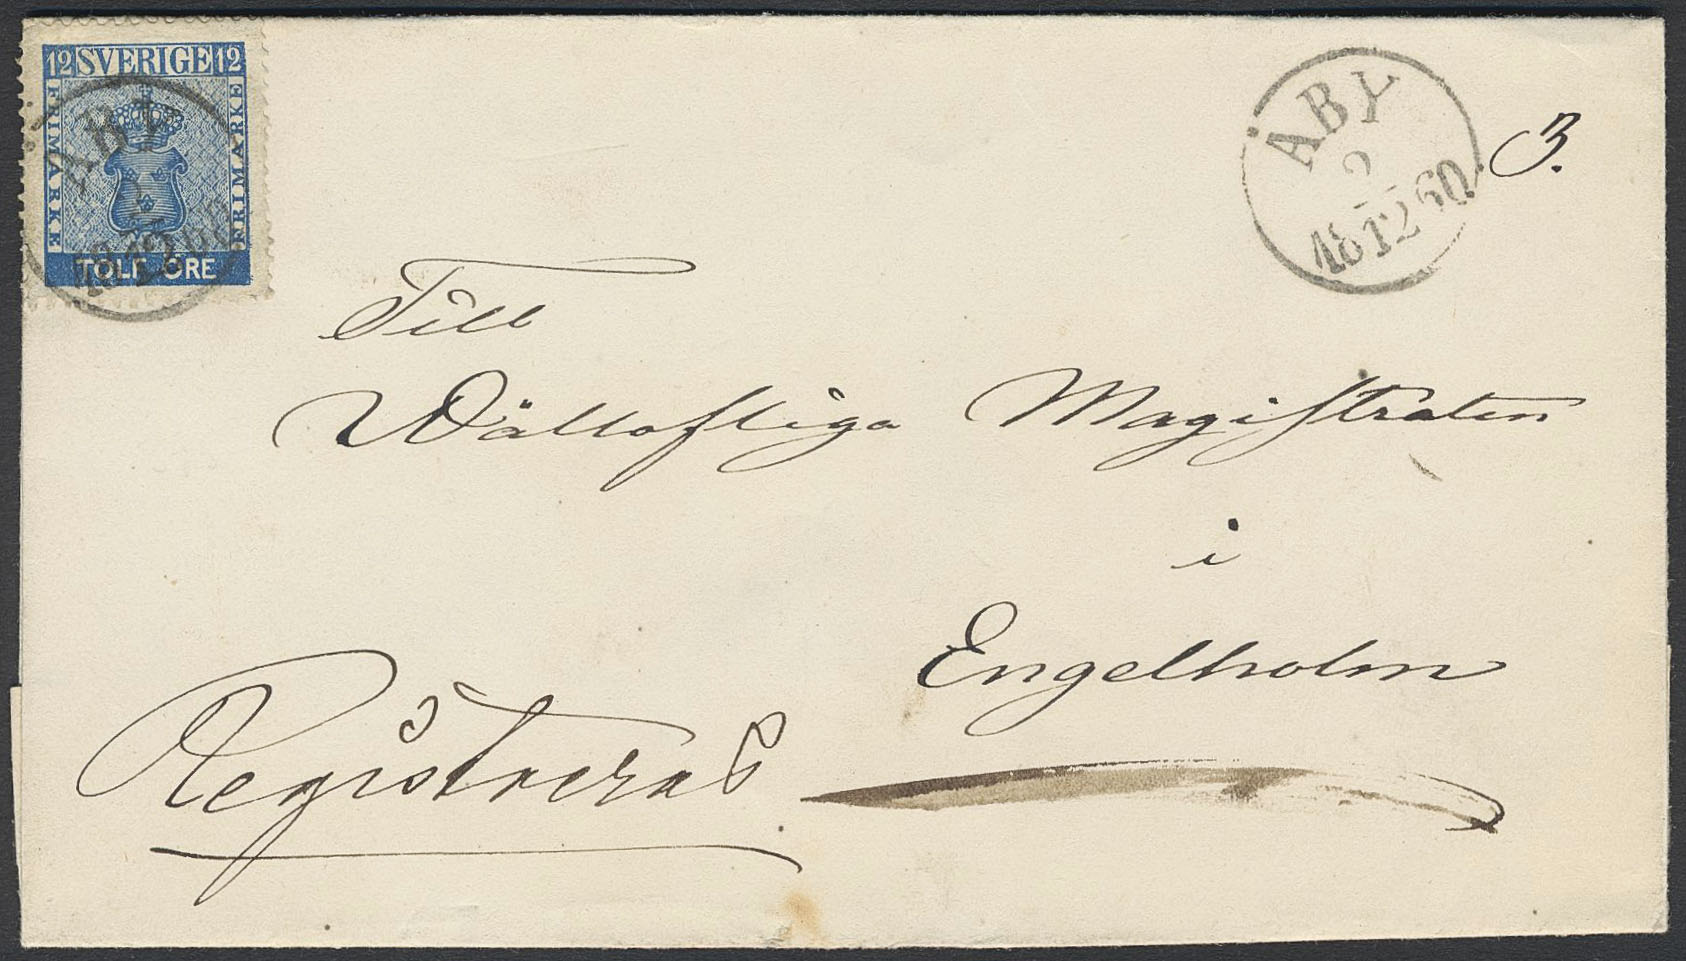 12 SVERIGE 12
FRIMÄRKE
FRIMÄRKE
TOLF ÖRE
ÅBY
1812
ÅBY
2
181260
3.
Till
Wällofliga Magistraten
i
Engelholm
Registreras